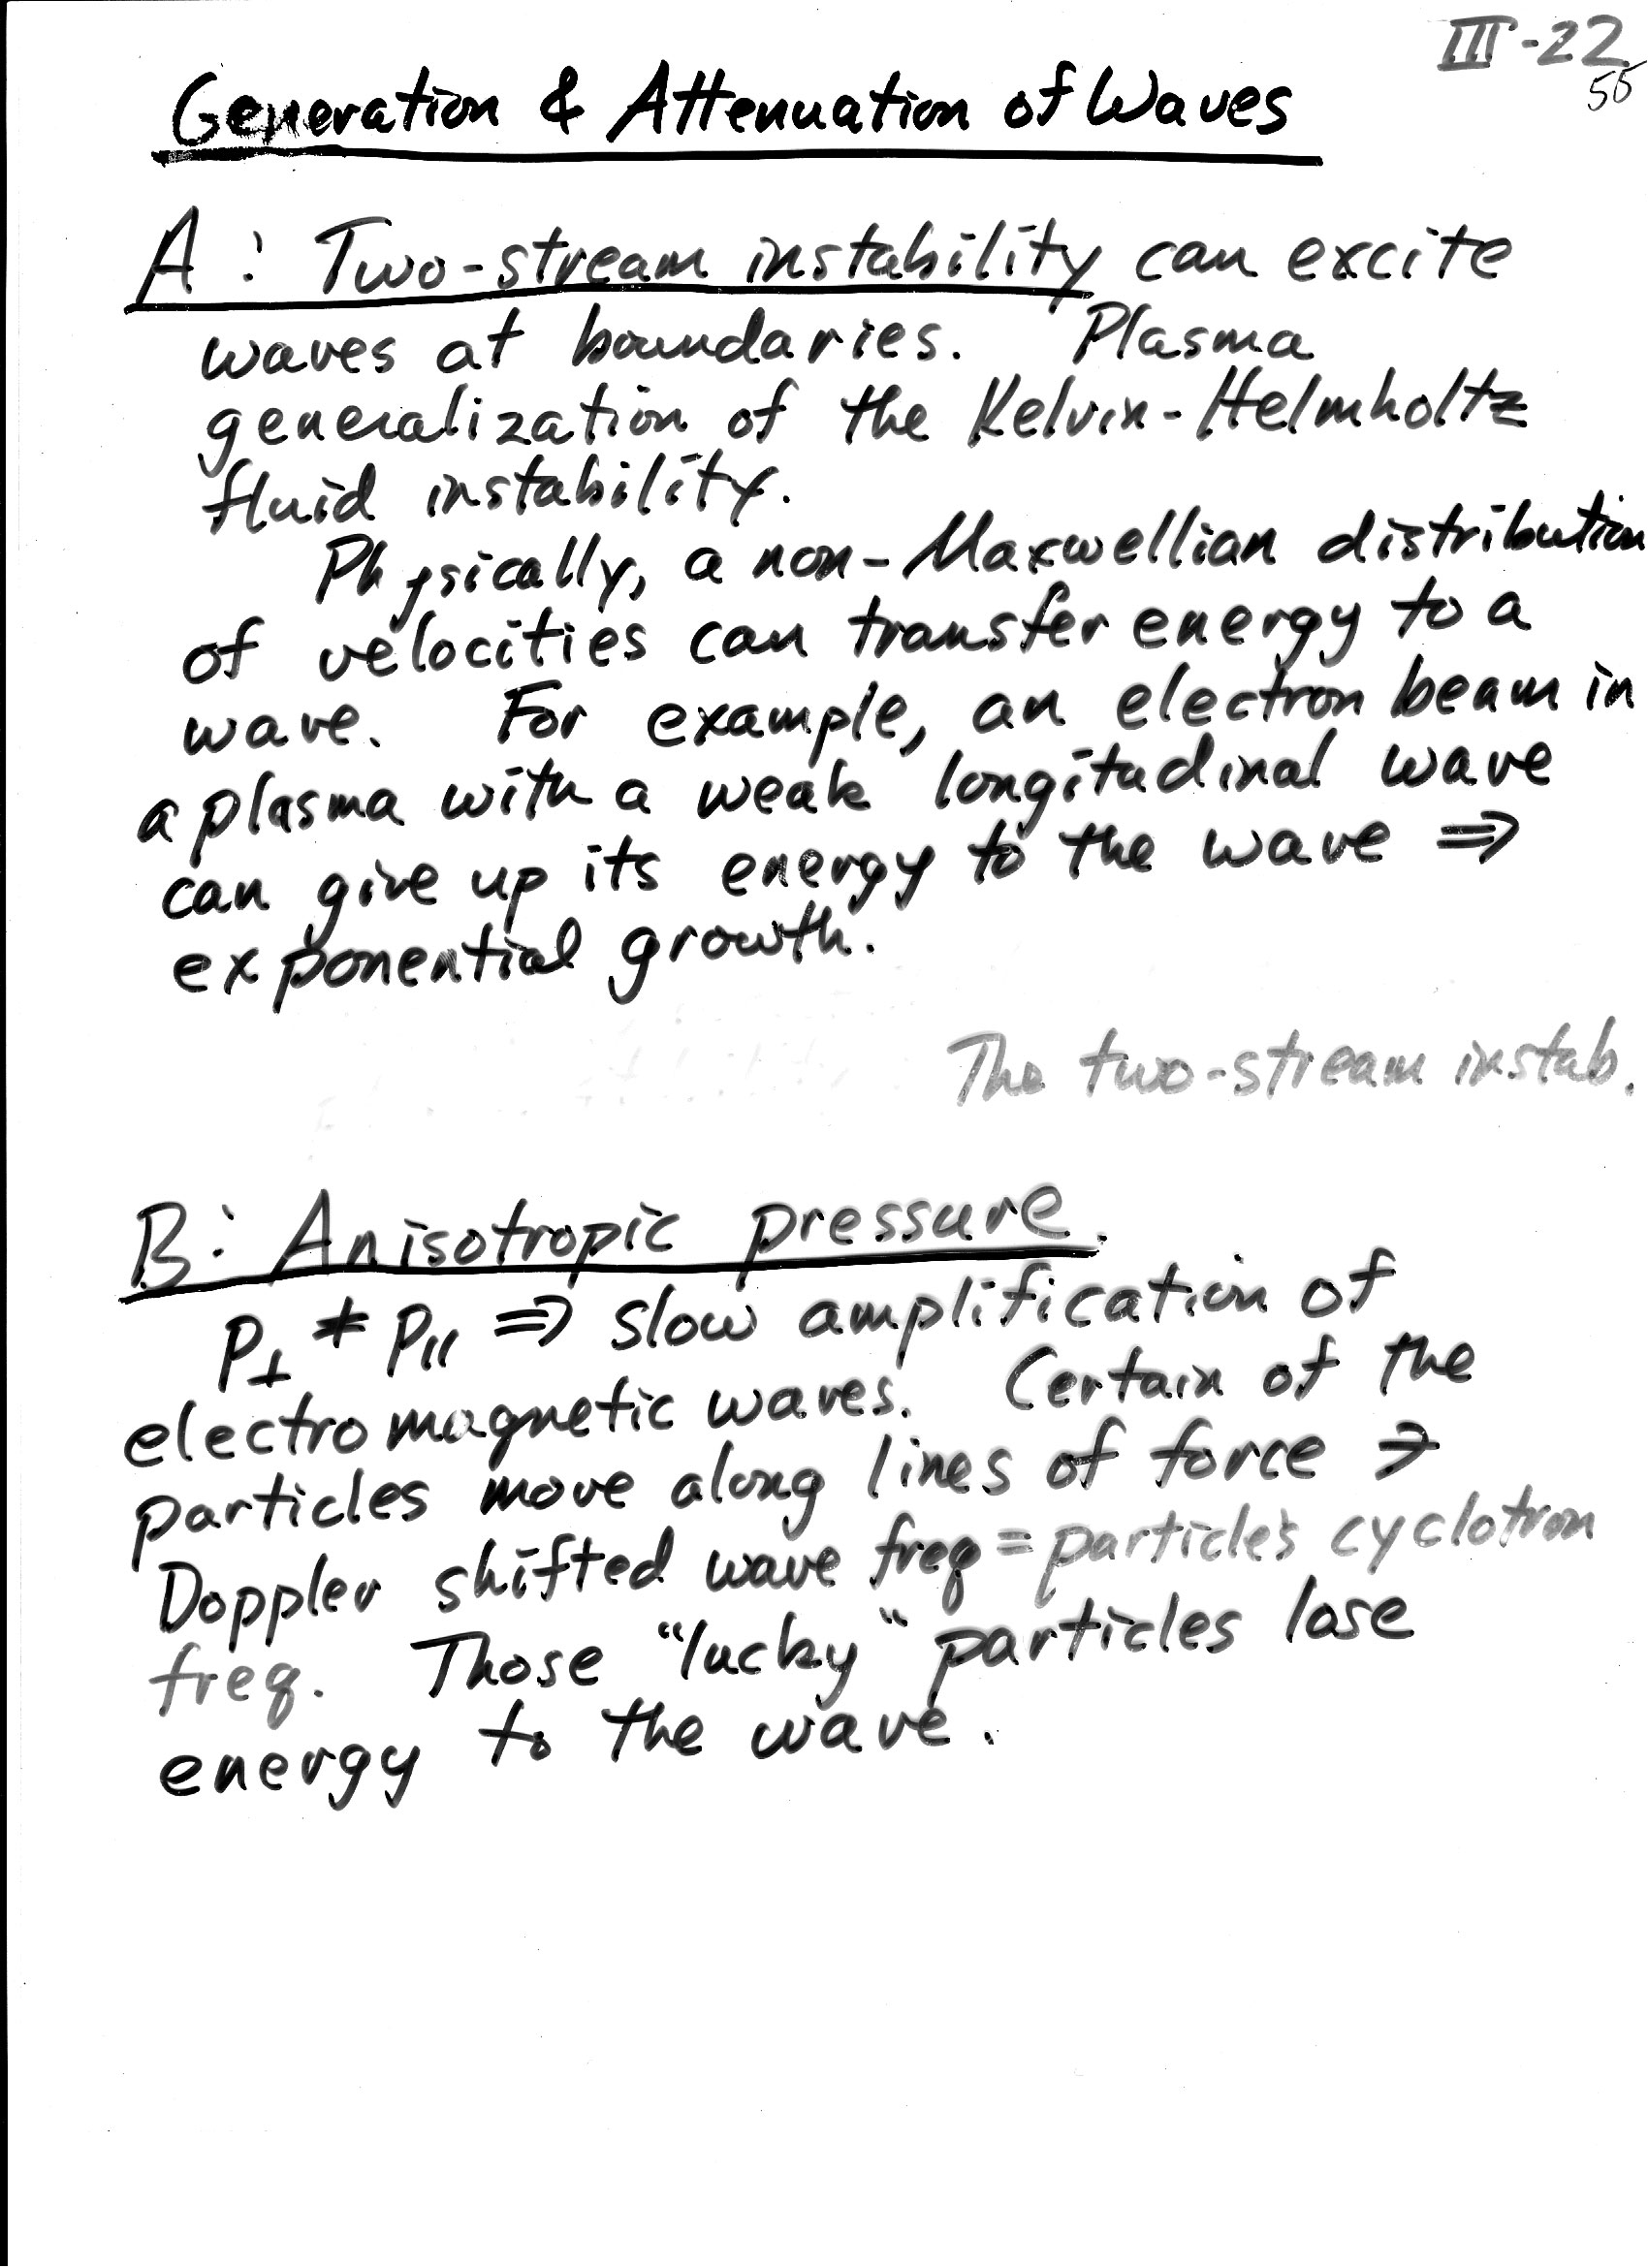 III-22
55
Generation & Attenuation of Waves
A: Two-stream instability can excite
waves at boundaries. Plasma
generalization of the Kelvin-Helmholtz
fluid instability.
Physically, a non-Maxwellian distribution
of velocities can transfer energy to a
wave. For example, an electron beam in
a plasma with a weak longitudinal wave
can give up its energy to the wave ⇒
exponential growth.
The two-stream instab.
B: Anisotropic pressure.
P⊥ ≠ P∥ ⇒ slow amplification of
electromagnetic waves. Certain of the
particles move along lines of force ⇒
Doppler shifted wave freq = particle's cyclotron
freq. Those "lucky" particles lose
energy to the wave.